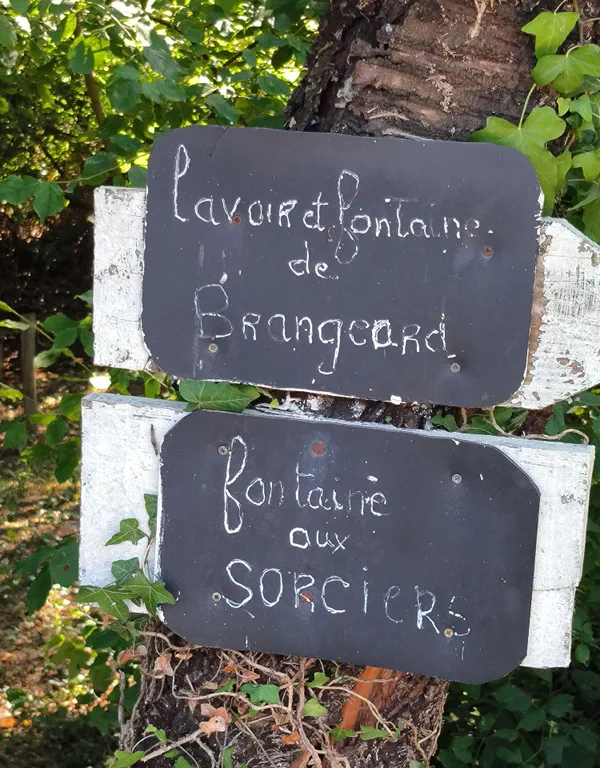 lavoir et fontaine
de
Brangeard
fontaine
aux
SORCiERS